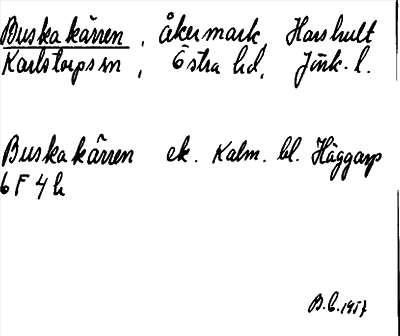 Buska kärren, åkermark, Harshult
Karlstorps sn, Östra hd, Jönk. l.
Buska kärren ek. Kalm. bl. Häggarp
6 F 4 h
B. C. 1957